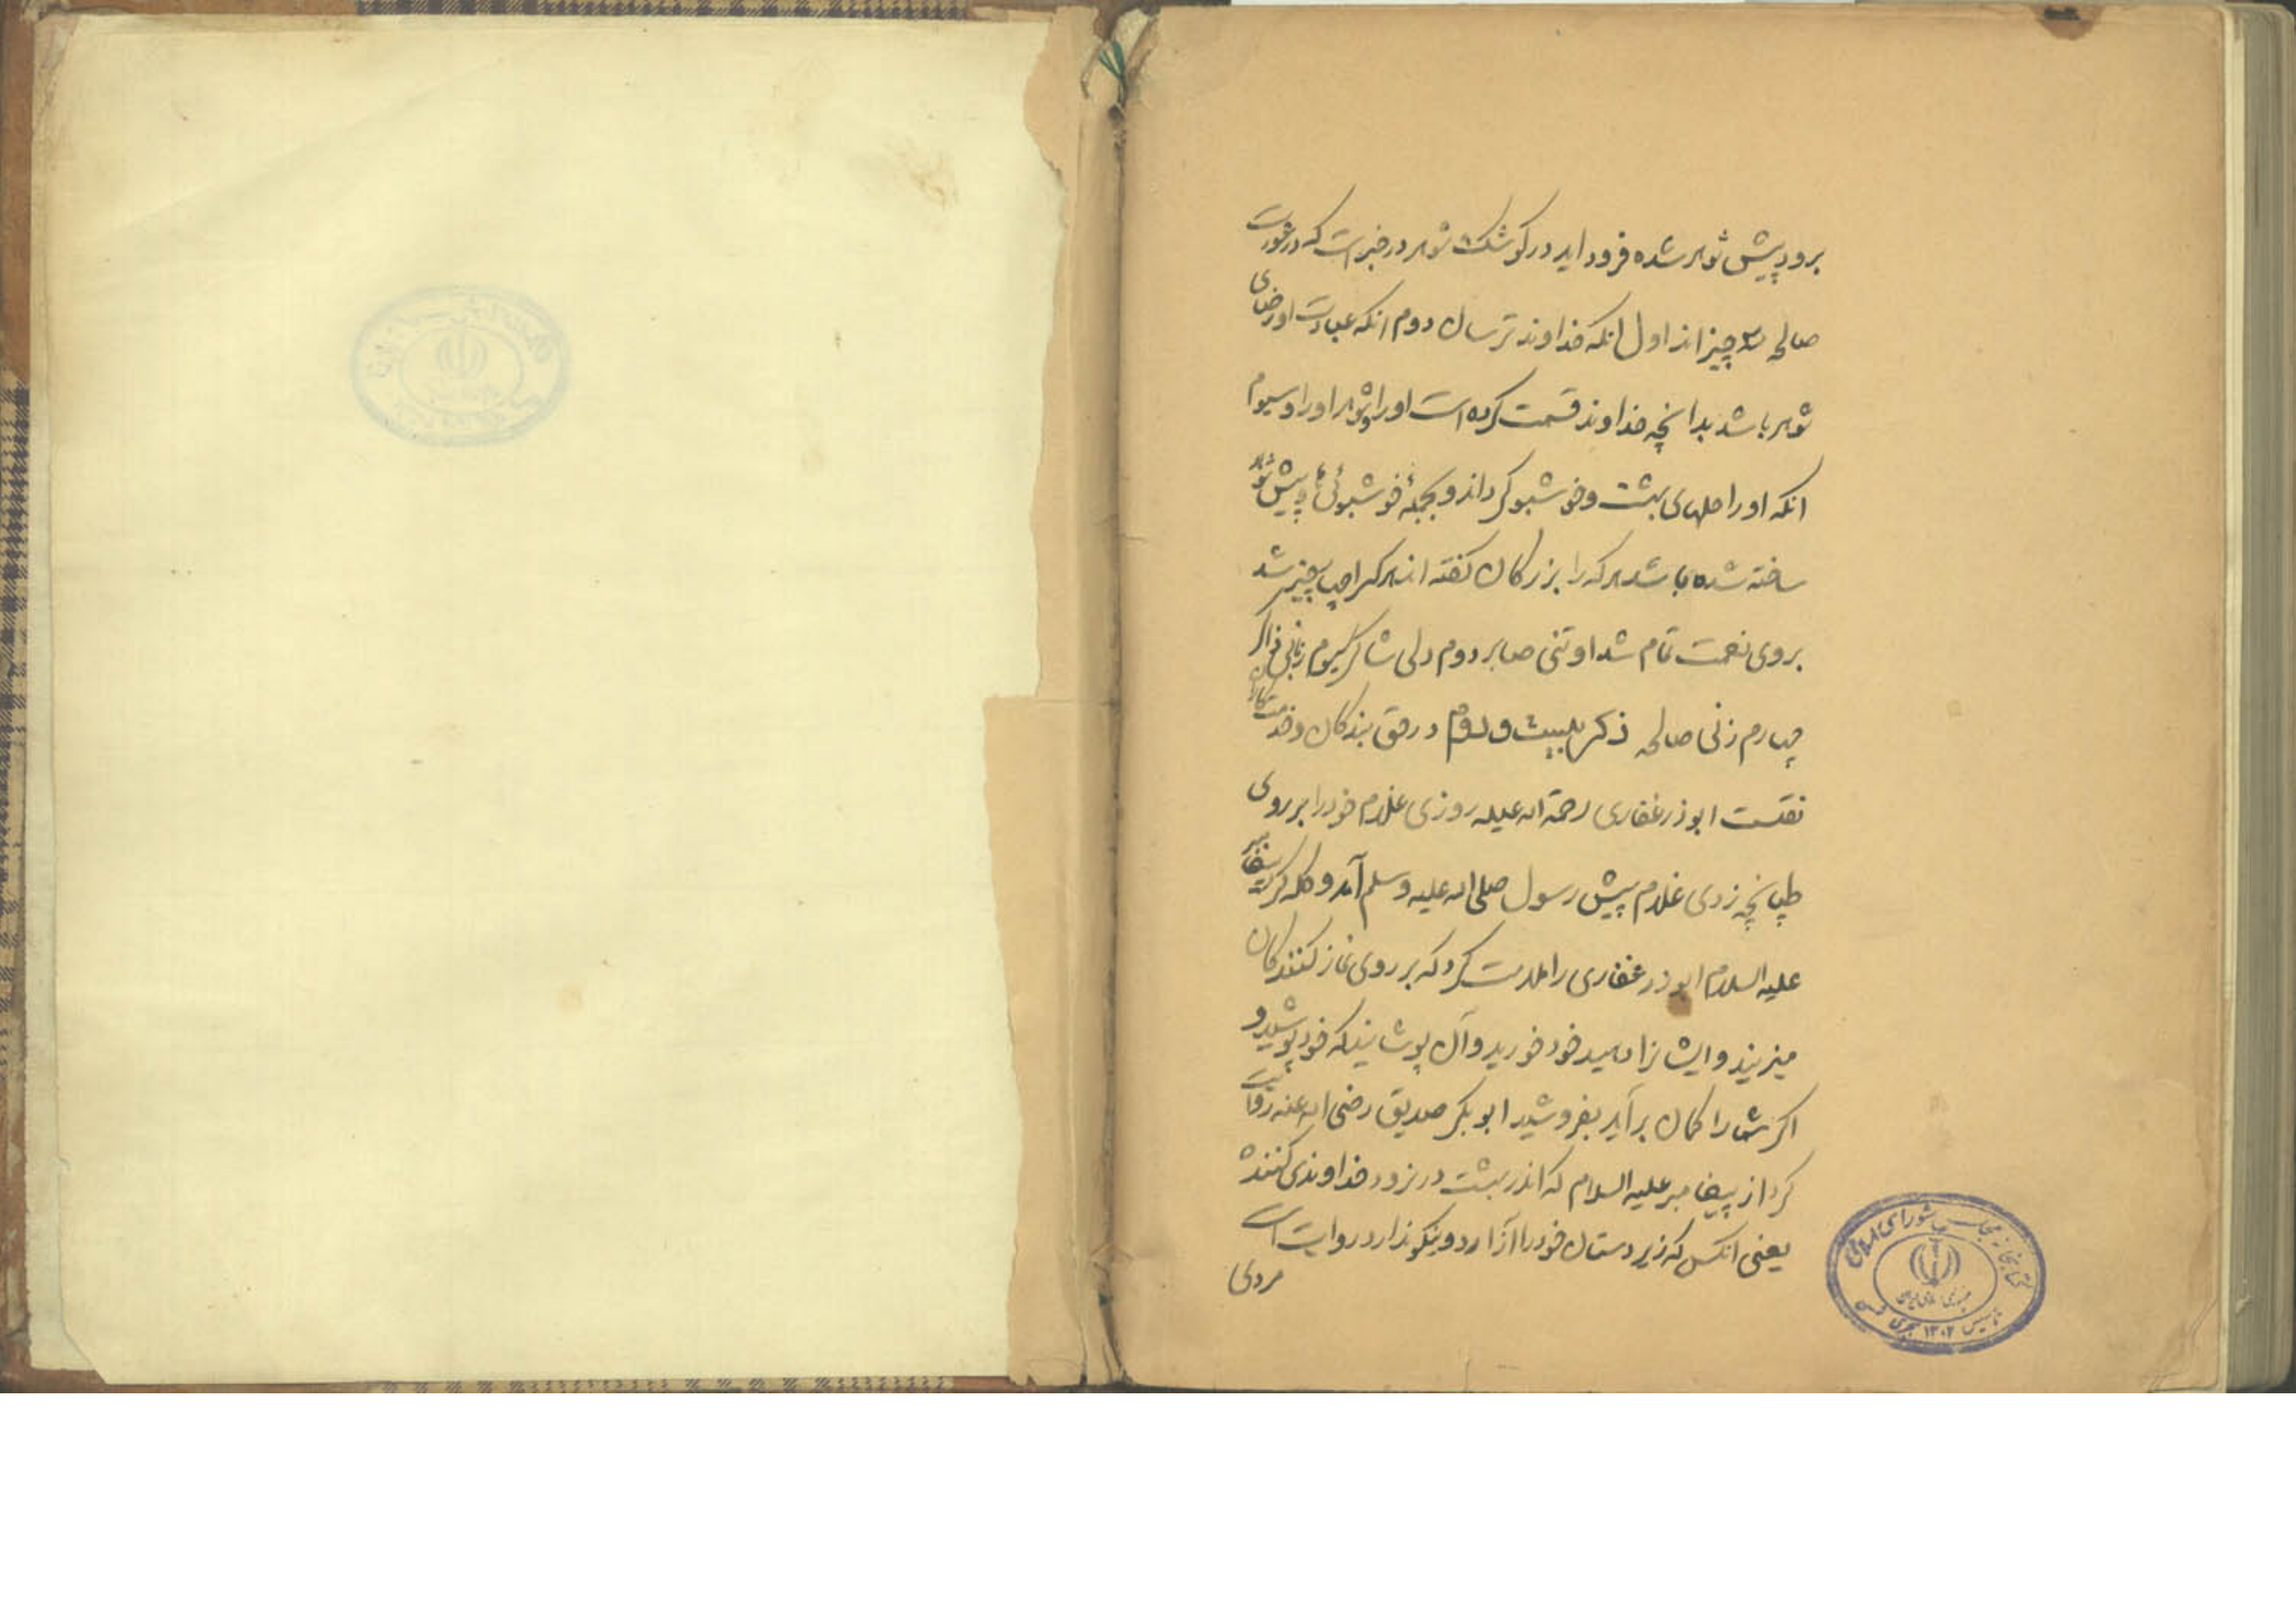 برود پیش شوهر شده فرود اید در کوشک شوهر در خبر است که در عورت
صالحه سه چیز اند اول انکه خداوند ترسان دوم انکه عبادت او رضای
شوهر باشد بدانچه خداوند قسمت کرده است او را و شوهر او را و سیوم
انکه او را حلهای بهشت و خوشبو کرداند و بجمله خوشبوئی پیش شوهر
ساخته شده باشد هر که را بزرکان کفته اند هر کرا چهار چیز شد
بروی نعمت تمام شد او تنی صابر دوم دلی شاکر سیوم زبانی ذاکر
چهارم زنی صالحه ذکر بیست و دوم در حق بندکان و خدمتکاران
نقلست ابوذر غفاری رحمة اله علیه روزی غلام خود را بر روی
طپانچه زدی غلام پیش رسول صلی اله علیه وسلم آمد و کله کرد پیغامبر
علیه السلام ابوذر غفاری را ملامت کرد که بر روی نماز کنندکان
میزنید و ایشانرا دهید خود خورید و آن پوشانید که خود پوشید و
اکر شما را کمان بر آید بفروشید ابوبکر صدیق رضی اله عنه روایت
کرد از پیغامبر علیه السلام که اندر بهشت در نرود خداوندی کننده
یعنی انکس که زیر دستان خود را آزارد و نیکو ندارد روایت است
مردی
کتابخانه مجلس شورای اسلامی
جمهوری اسلامی ایران
تاسیس ۱۳۰۲ هجری